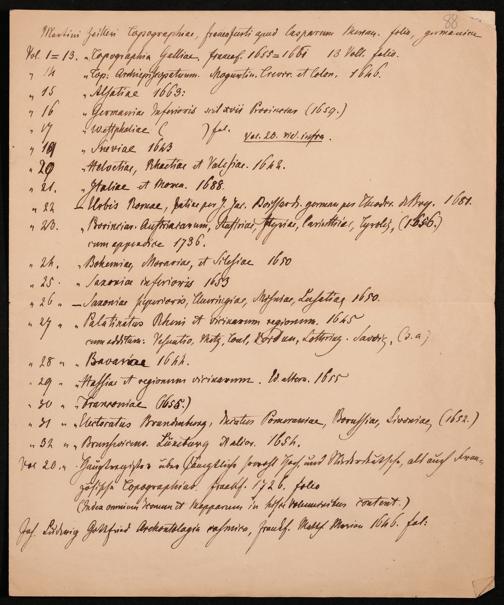 88
Martini Zeilleri Topographiae, francofurti apud Casparum Merian. folio, germanice
Vol. 1=13. „ Topographia Galliae, francof. 1655=1661 13 Voll. folio.
„ 14 „ Top: Archiepiscopatuum. Moguntin. Trever. et Colon. 1646.
„ 15 „ Alsatiae 1663:
„ 16 „ Germaniae Inferioris XVII Provinciae (1659.)
„ 17 „ Westphaliae ( ) fol. Vol. 20. vid. infra.
„ 19 „ Sueviae 1643
„ 20 „ Helvetiae, Rhaetiae et Valesiae. 1642.
„ 21. „ Italiae et Roma. 1688.
„ 22 — Urbis Romae, J. Jac. Boissard. german per Theodor. de Bry. 1681.
„ 23. „ Provinciar. Austriacarum, Austriae, Styriae, Carinthiae, Tyrolis, (1656.)
cum appendice 1736.
„ 24. „ Bohemiae, Moraviae, et Silesiae 1650
„ 25. „ Saxonia inferioris 1653
„ 26 „ — Saxoniae superioris, Thuringiae, Misniae, Lusatiae 1650.
„ 27 „ „ Palatinatus Rheni et vicinarum regionum. 1645
cum additam: Vesuntio, Metz, Toul, Verdun, Lothring. Savoie, (s. a.)
„ 28 „ „ Bavariae 1644.
„ 29 „ „ Hassiae et regionum vicinarum. Ed. altera. 1655
„ 30 „ „ Franconiae (1655.)
„ 31 „ „ Electoratus Brandenburg, Ducatus Pomeraniae, Borussiae, Livoniae, (1652.)
„ 32 „ „ Brunsvicens. Lüneburg 1654.
Vol 20. „ Hauptregister über sämtliche sowohl Hoch und Niederdeutsche, als auch Fran-
zösische Topographias. francf. 1726. folio
(Index omnium Iconum et Mapparum in hisce voluminibus content.)
Joh. Ludwig Gottfried Archontologia cosmica, francf. Math. Merian 1646. fol: